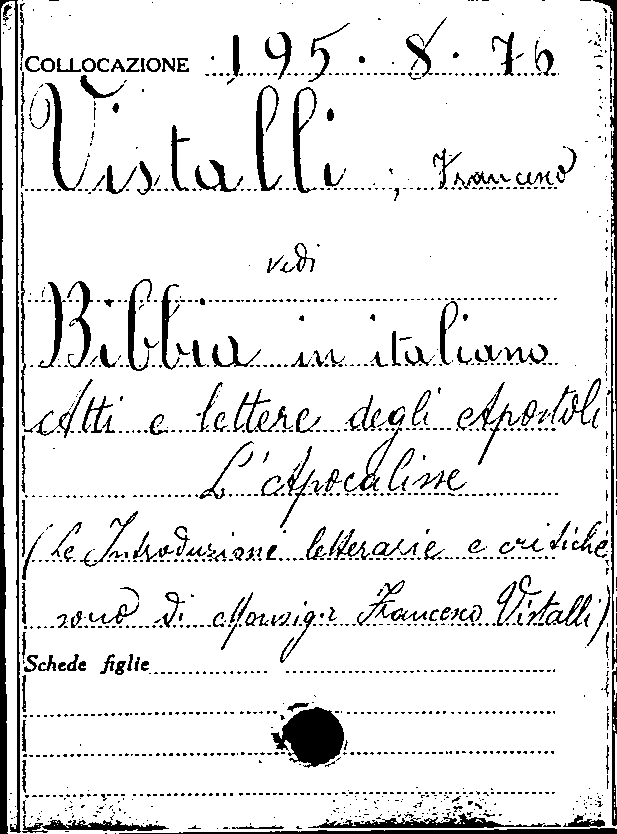 COLLOCAZIONE 195. 8. 76
Vistalli, Francesco
vedi
Bibbia in italiano
Atti e lettere degli Apostoli
L'Apocalisse
(Le Introduzioni letterarie e critiche
sono di Monsig.r Francesco Vistalli)
Schede figlie